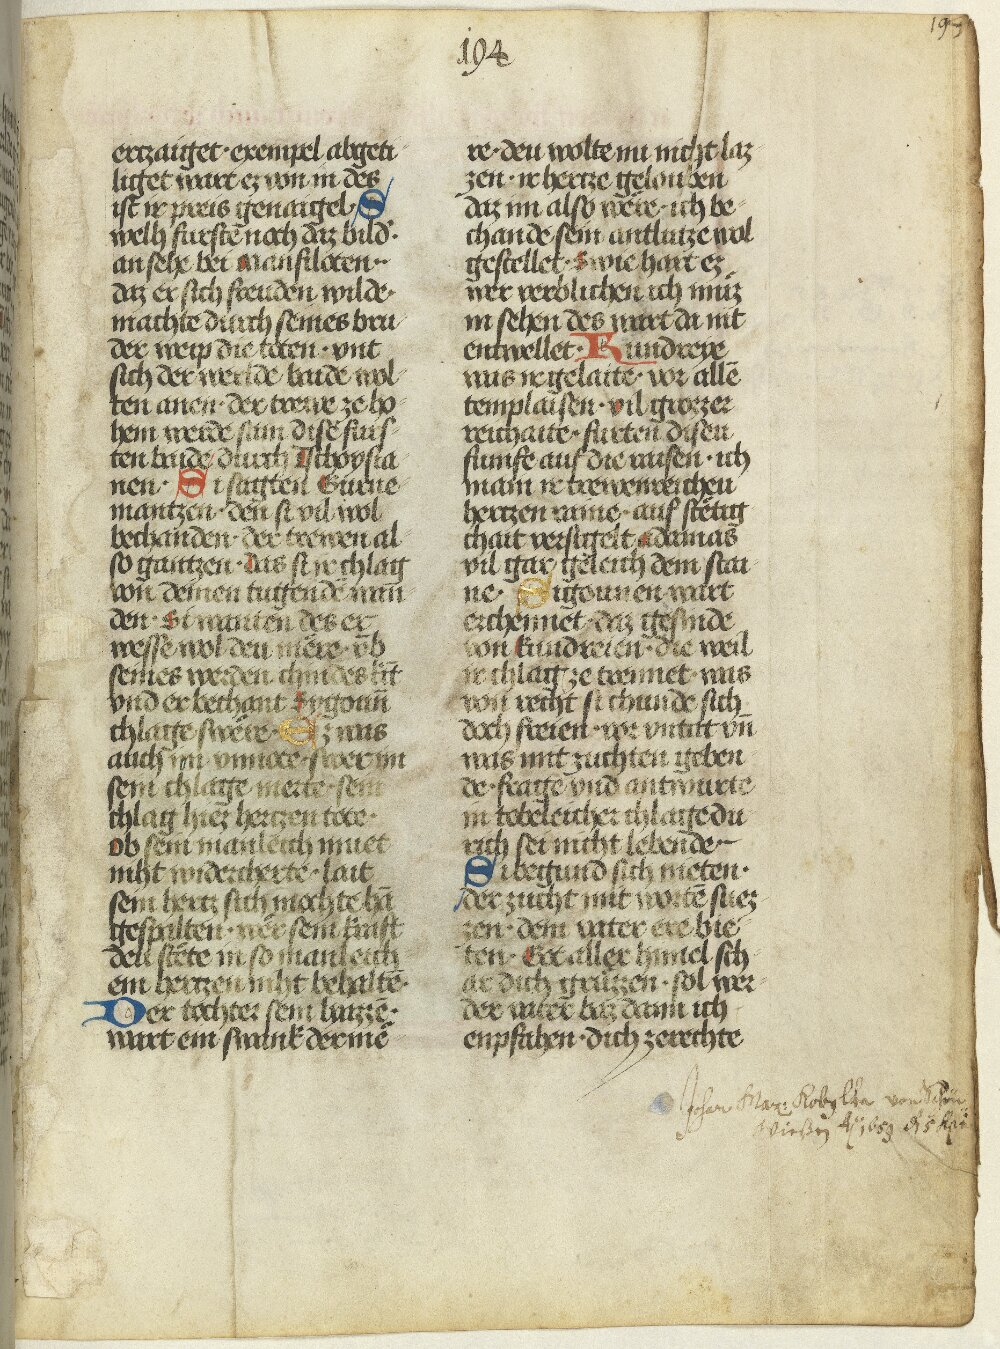 194
ertzaiget · exempel abgeti
liget wart ez von in des
ist ir preis genaiget · S
welh furstē noch daz bild ·
an sehe bei manfiloten ·
daz er sich freuden wilde ·
machte durch seines bru
der weip die toten · vnt
sich der werlde baide wol
ten anen · der trewe ze ho
hem werde sam dise furs
ten baide durch Tschoysia
nen · Si sagten Gurne
mantzen · den si vil wol
bechanden · der trewen al
so gantzen · das si ir chlag
von deinen tugende wan
den · Si wanten des er
wesse wol deu mere · vb
seines werden chindes
vnd er bechant Sygoun
chlage swere · Ez was
auch im vnmere · swer im
sein chlage merte · sein
chlag hiez hertzen tore ·
ob sein manleich muet
niht widercherte · lait
sein hertz sich mochte hā
gespalten · wer sein kraft
deu stete in so manleich
em hertzen niht behaltē ·
Der tochter sein
wart ein swank der me
re · deu wolte im nicht laz
zen · ir hertze gelouben
daz im also were · ich be
chande sein antlutze wol
gestellet · Swie hart ez
wer verblichen ich muz
in sehen des wart da nit
entwellet · Kundreye
was ir gelaite · vor allē
templaisen · vil grozzer
reichaite · furten disen
funfe auf die raisen · ich
main ir trewenreichen
hertzen raine · auf stetig
chait versigelt adamas
vil gar geleich dem stai
ne · Sigounen wart
erchennet · daz gesinde
von kundreien · die weil
ir chlag ze trennet · was
von recht si chunde sich
doch freien · vor vntat vn̄
was mit zuchten geben
de · frage vnd antwurte
in tobeleicher chlage du
rich sei nicht lebende ·
Si begund sich nieten ·
der zucht mit wortē suez
zen · dem vater ere bie
ten · Got aller himel sch
ar dich gruzzen · sol wer
der vater baz dann ich
enpfahen · dich ze rechte
Johan